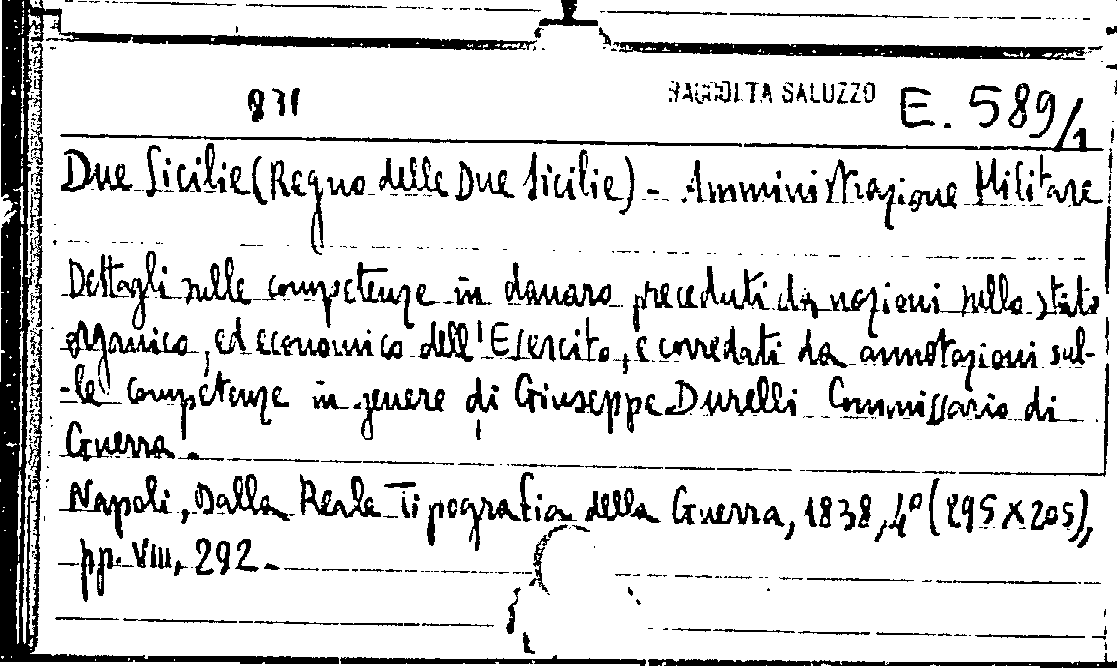 871 RACCOLTA SALUZZO E. 589/1
Due Sicilie (Regno delle Due Sicilie) - Amministrazione Militare
Dettagli sulle competenze in danaro preceduti da nozioni sullo stato
organico, ed economico dell'Esercito, e corredati da annotazioni sul-
-le competenze in genere di Giuseppe Durelli Commissario di
Guerra.
Napoli, Dalla Reale Tipografia della Guerra, 1838, 4° (295 X 205),
pp. VIII, 292.